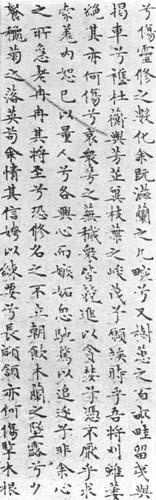 兮傷靈修之數化余既滋蘭之九畹兮又樹蕙之百畝畦留荑與
揭車兮雜杜衡與芳芷冀枝葉之峻茂兮願竢時乎吾將刈雖萎
絕其亦何傷兮哀衆芳之蕪穢衆皆競進以貪婪兮憑不厭乎求
索羌內恕己以量人兮各興心而嫉妬忽馳騖以追逐兮非余心
之所急老冉冉其將至兮恐修名之不立朝飲木蘭之墜露兮夕
餐秋菊之落英苟余情其信姱以練要兮長顑頷亦何傷擥木根